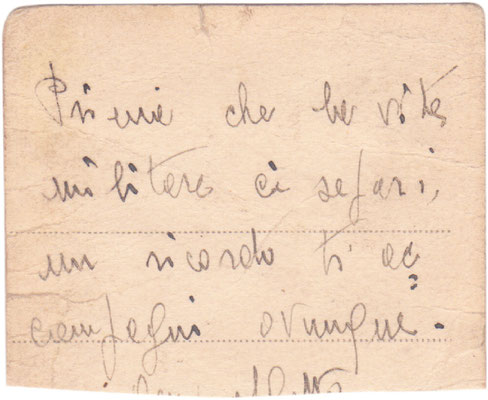 Prima che la vita
militare ci separi,
un ricordo ti ac=
compagni ovunque.